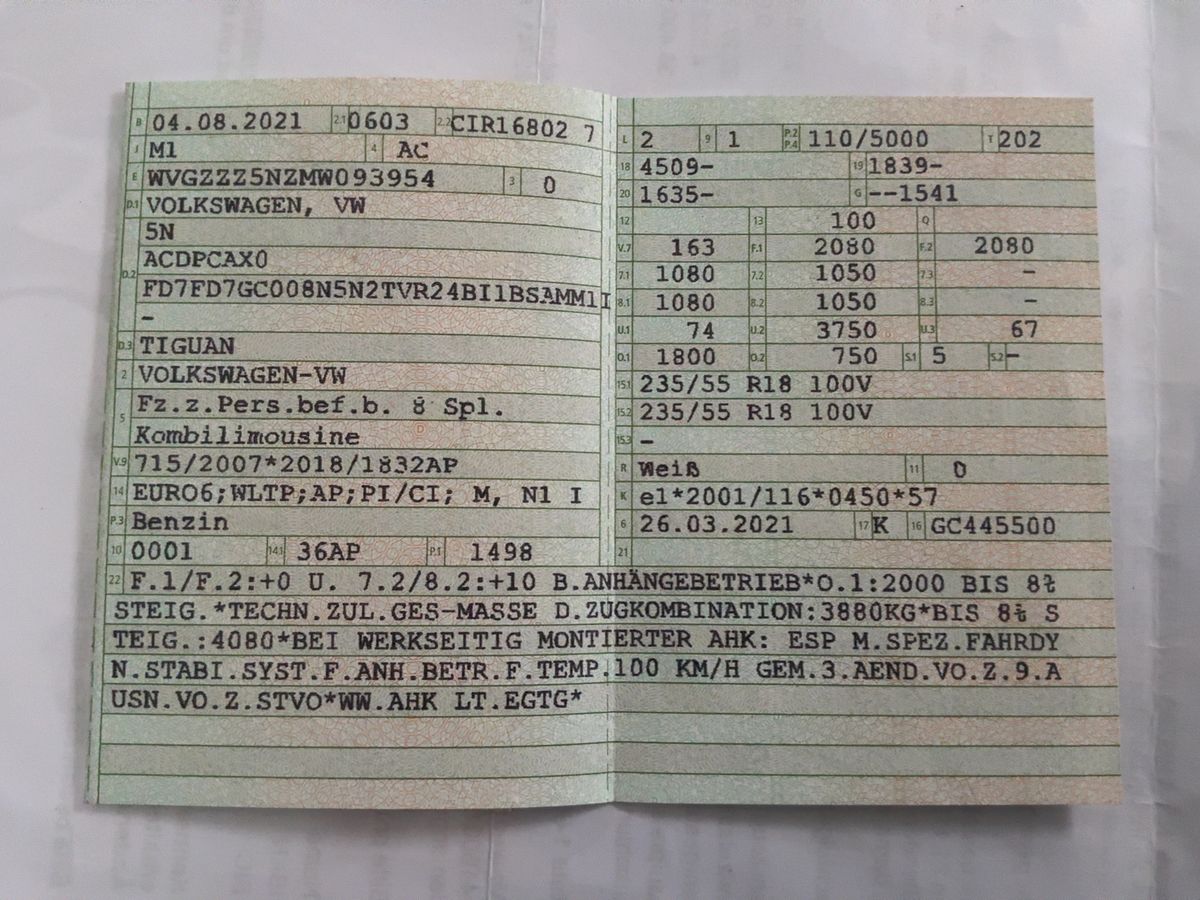 B 04.08.2021 2.1 0603 2.2 CIR16802 7
J M1 4 AC
E WVGZZZ5NZMW093954 3 0
D.1 VOLKSWAGEN, VW
5N
D.2 ACDPCAX0
FD7FD7GC008N5N2TVR24BI1BSAMM1I
-
D.3 TIGUAN
2 VOLKSWAGEN-VW
5 Fz.z.Pers.bef.b. 8 Spl.
Kombilimousine
V.9 715/2007*2018/1832AP
14 EURO6;WLTP;AP;PI/CI; M, N1 I
P.3 Benzin
10 0001 14.1 36AP P.1 1498
L 2 9 1 P.2 P.4 110/5000 T 202
18 4509- 19 1839-
20 1635- G --1541
12 13 100 Q
V.7 163 F.1 2080 F.2 2080
7.1 1080 7.2 1050 7.3 -
8.1 1080 8.2 1050 8.3 -
U.1 74 U.2 3750 U.3 67
O.1 1800 O.2 750 S.1 5 S.2 -
15.1 235/55 R18 100V
15.2 235/55 R18 100V
15.3 -
R Weiß 11 0
K e1*2001/116*0450*57
6 26.03.2021 17 K 16 GC445500
21
22 F.1/F.2:+0 U. 7.2/8.2:+10 B.ANHÄNGEBETRIEB*O.1:2000 BIS 8%
STEIG.*TECHN.ZUL.GES-MASSE D.ZUGKOMBINATION:3880KG*BIS 8% S
TEIG.:4080*BEI WERKSEITIG MONTIERTER AHK: ESP M.SPEZ.FAHRDY
N.STABI.SYST.F.ANH.BETR.F.TEMP.100 KM/H GEM.3.AEND.VO.Z.9.A
USN.VO.Z.STVO*WW.AHK LT.EGTG*